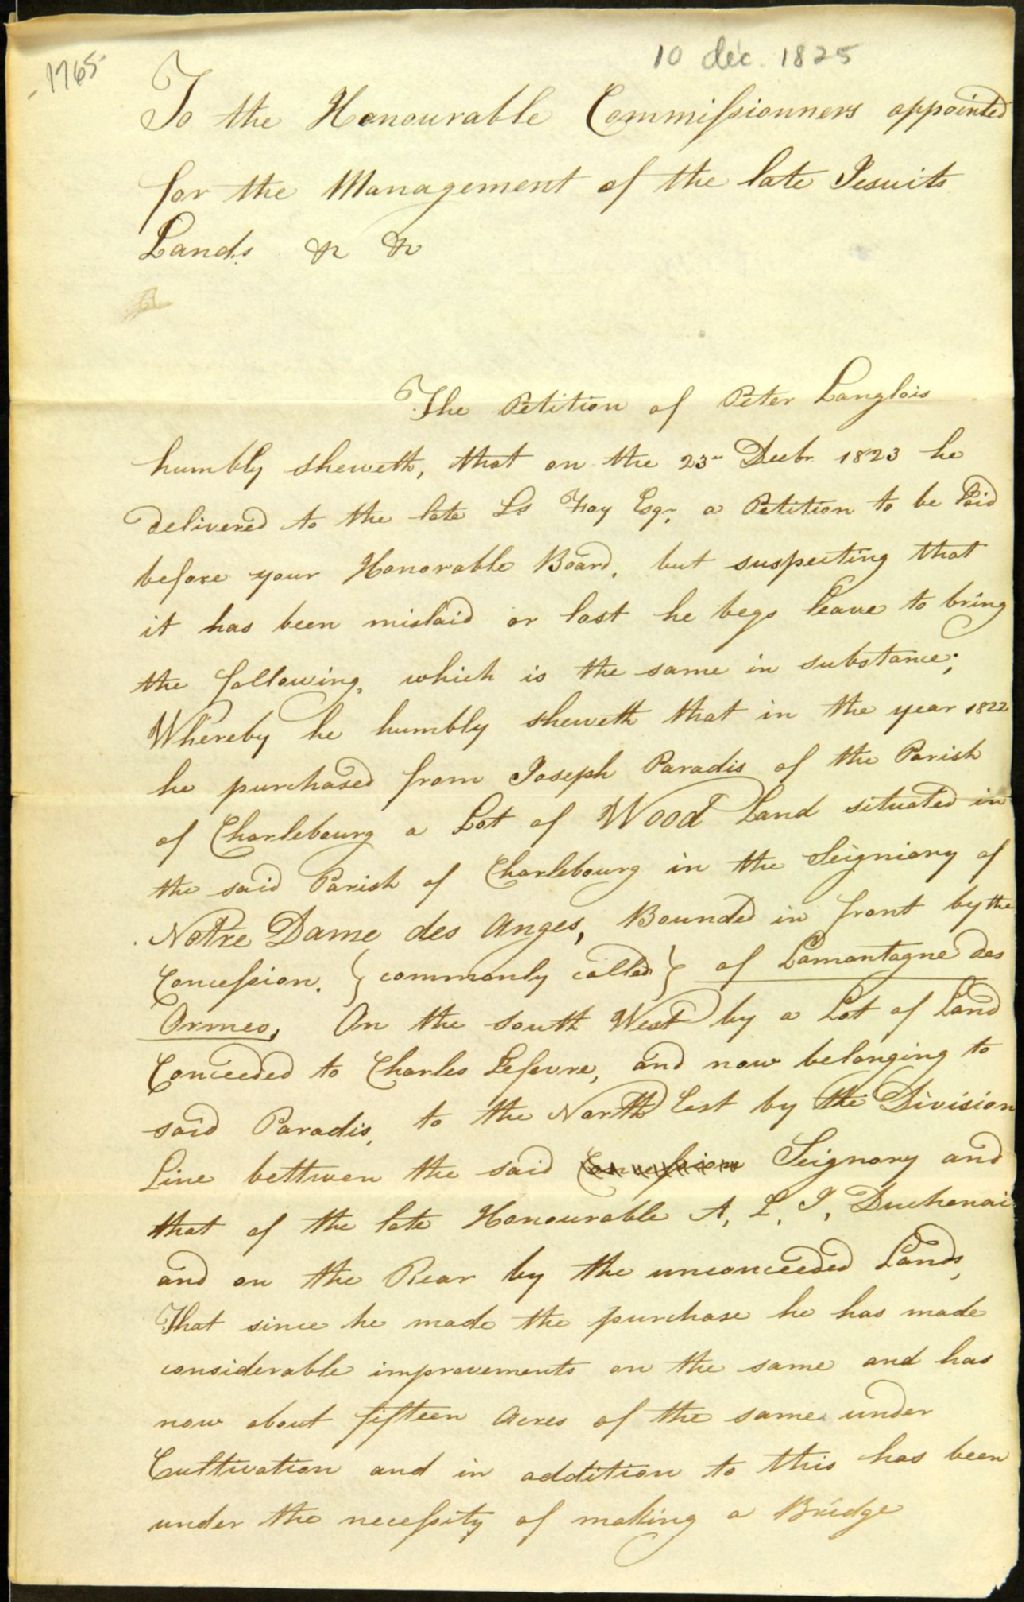 1765
10 déc. 1825
To the Honourable Commissionners appointed
for the Management of the late Jesuits
Lands &c &c
The Petition of Peter Langlois
humbly sheweth, that on the 23rd Decbr 1823 he
delivered to the late Ls Foy Esqr, a Petition to be laid
before your Honorable Board, but suspecting that
it has been mislaid or lost he begs leave to bring
the following, which is the same in substance;
Whereby he humbly sheweth that in the year 1822
he purchased from Joseph Paradis of the Parish
of Charlebourg a Lot of Wood Land situated in
the said Parish of Charlebourg in the Seigniory of
Notre Dame des Anges, Bounded in front by the
Concession, } commonly called } of Lamontagne des
Ormes, On the south West by a Lot of Land
Conceeded to Charles Lefevre, and now belonging to
said Paradis, to the North East by the Division
Line bettwen the said Seignory and
that of the late Honourable A, L, J, Duchenai
and on the Rear by the unconceeded Lands,
That since he made the purchase he has made
considerable improvements on the same and has
now about fifteen Acres of the same under
Cultivation and in addition to this has been
under the necessity of making a Bridge